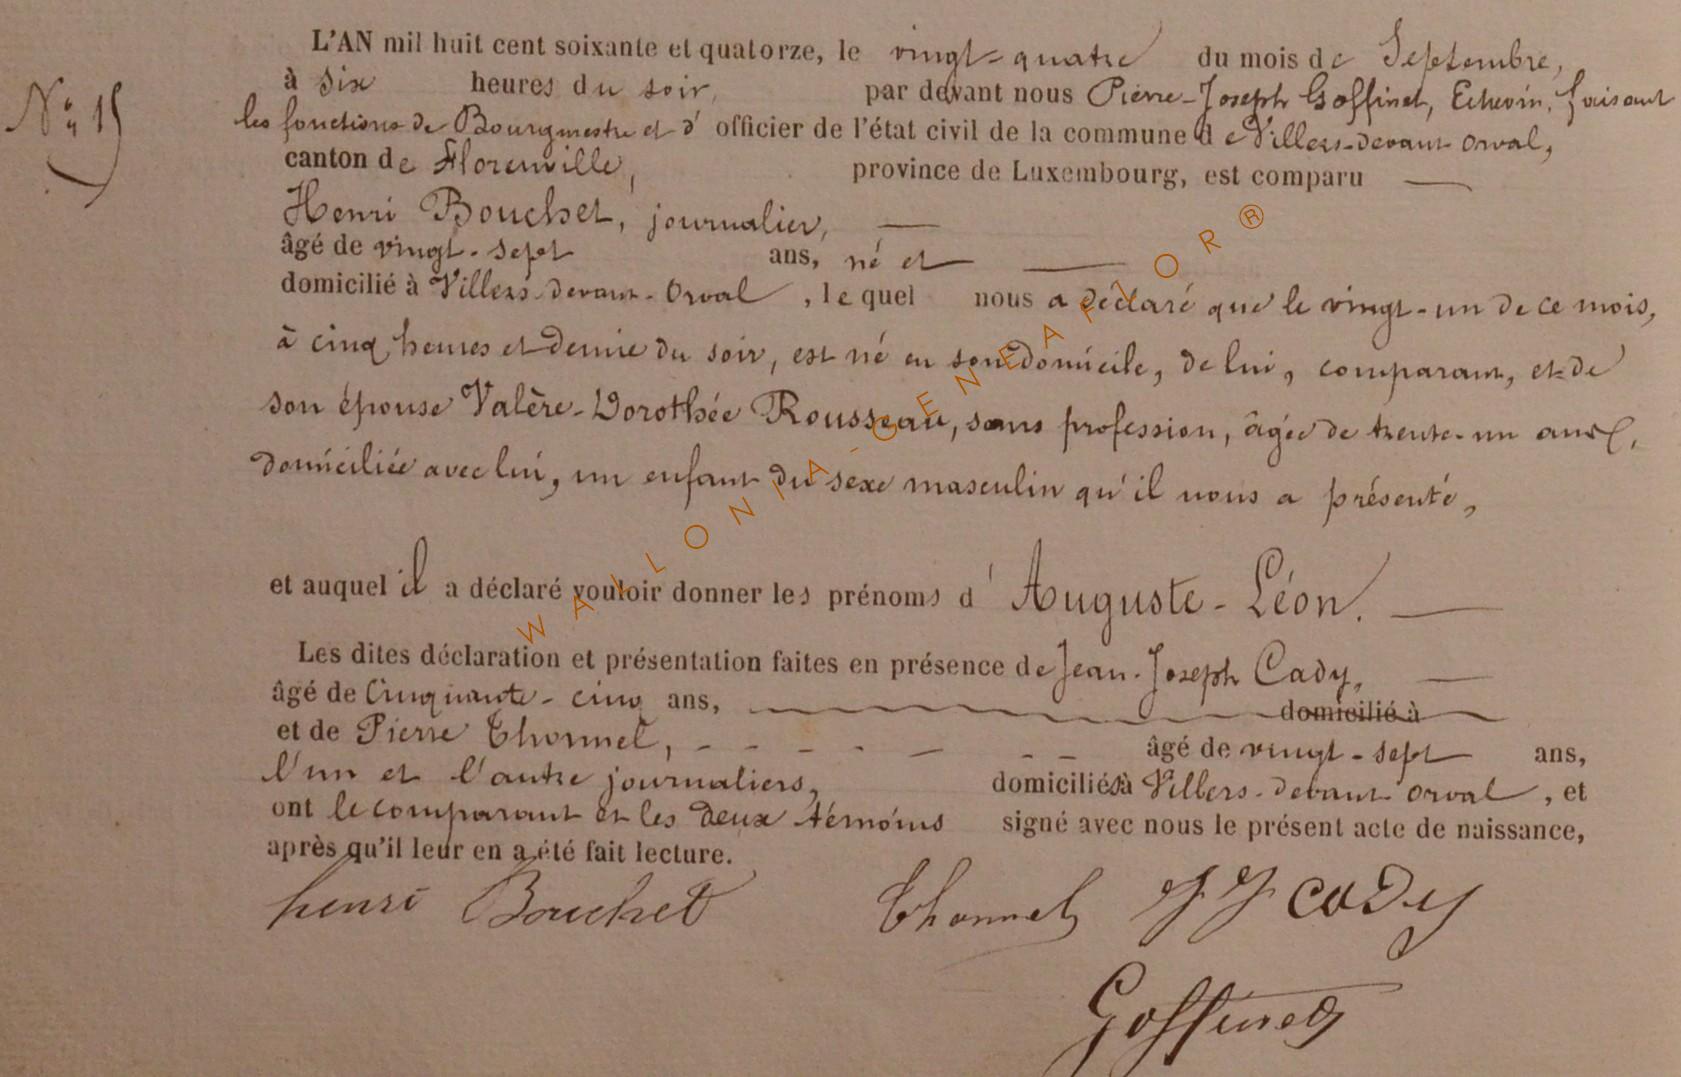 L'AN mil huit cent soixante et quatorze, le vingt-quatre du mois de Septembre,
à six heures du soir, par devant nous Pierre-Joseph Goffinet, Echevin, faisant
N° 15
les fonctions de Bourgmestre et d'officier de l'état civil de la commune de Villers-devant-Orval,
canton de Florenville, province de Luxembourg, est comparu
Henri Bouchet, journalier,
âgé de vingt-sept ans, né et
domicilié à Villers-devant-Orval, lequel nous a déclaré que le vingt-un de ce mois,
à cinq heures et demie du soir, est né en son domicile, de lui, comparant, et de
son épouse Valère-Dorothée Rousseau, sans profession, âgée de trente-un ans,
domiciliée avec lui, un enfant du sexe masculin qu'il nous a présenté,
et auquel il a déclaré vouloir donner les prénoms d'Auguste-Léon.
Les dites déclaration et présentation faites en présence de Jean-Joseph Cady,
âgé de Cinquante-cinq ans, domicilié à
et de Pierre Thonnel, âgé de vingt-sept ans,
l'un et l'autre journaliers, domiciliés à Villers-devant-Orval, et
ont le comparant et les deux témoins signé avec nous le présent acte de naissance,
après qu'il leur en a été fait lecture.
henri Bouchet Thonnel JJ Cady
Goffinet
WALLONIA-GENEAFLOR®